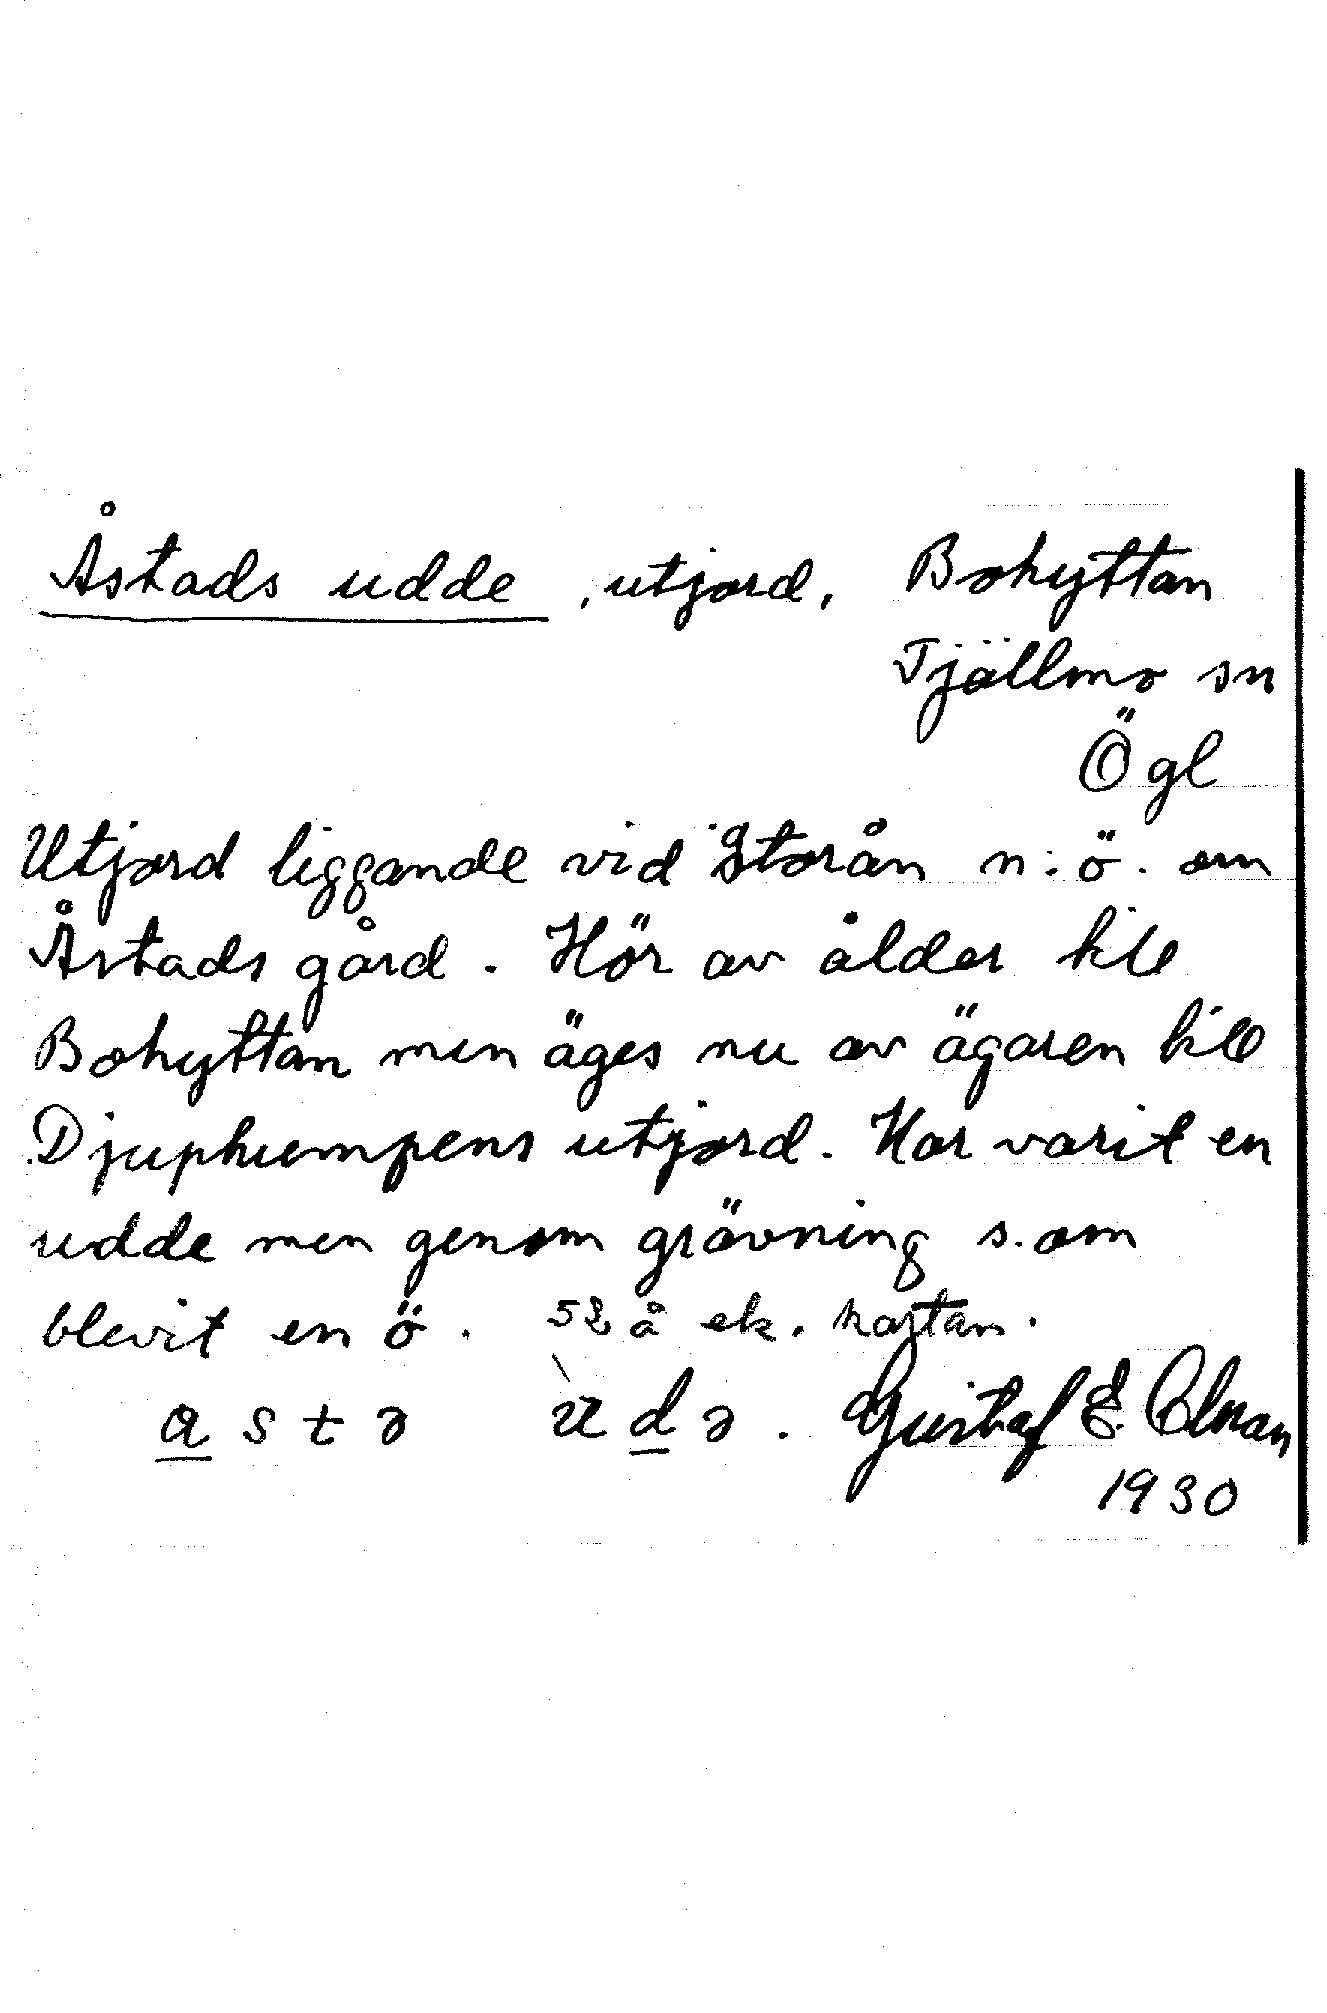 Åstads udde, utjord, Bohyttan
Tjällmo sn
Ögl
Utjord liggande vid Storån n.ö. om
Åstads gård. Hör av ålder till
Bohyttan men äges nu av ägaren till
Djuphumpens utjord. Har varit en
udde men genom grävning s. om
blevit en ö. å ek. kartan.
a s t ə ù d ə.
Gustaf E.
1930